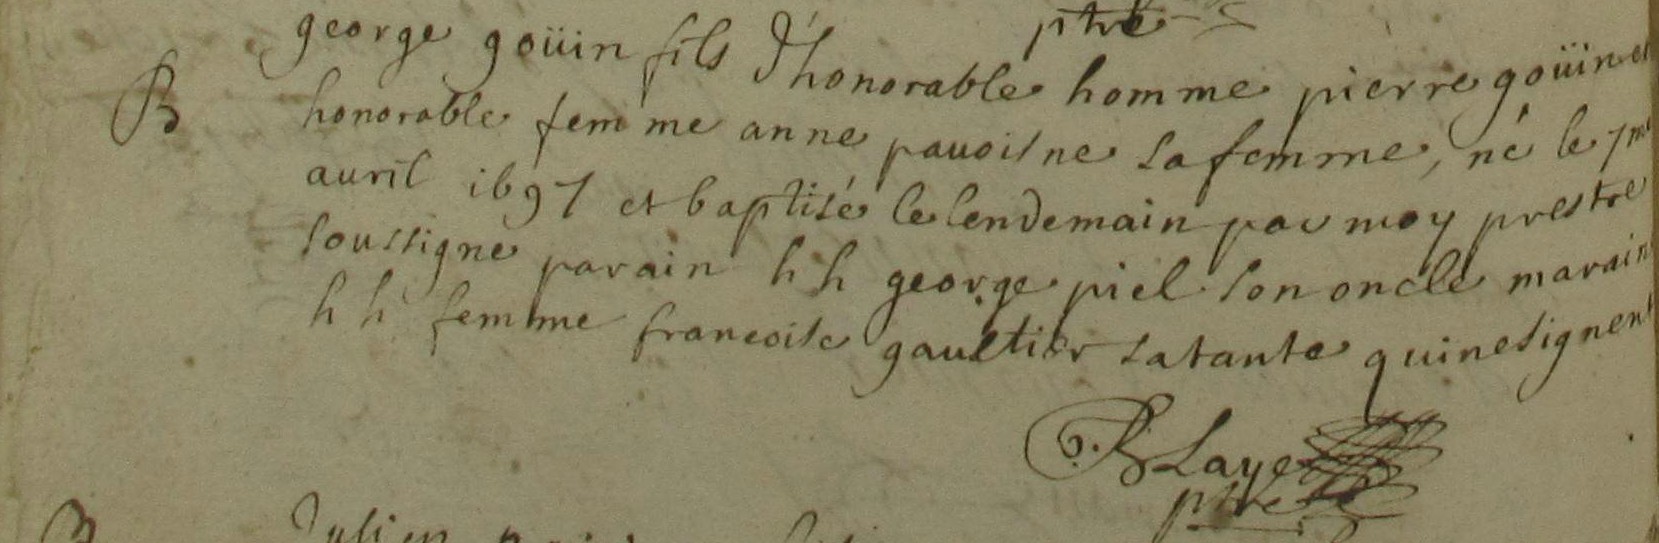 ptre
george goüin fils d'honorable homme pierre goüin et
B honorable femme anne pauoisne sa femme, né le 7me
auril 1697 et baptisé le lendemain par moy prestre
soussigne parain h h george piel son oncle marain
h h femme francoise gaultier sa tante qui ne signent
Laye
ptre
B Julien